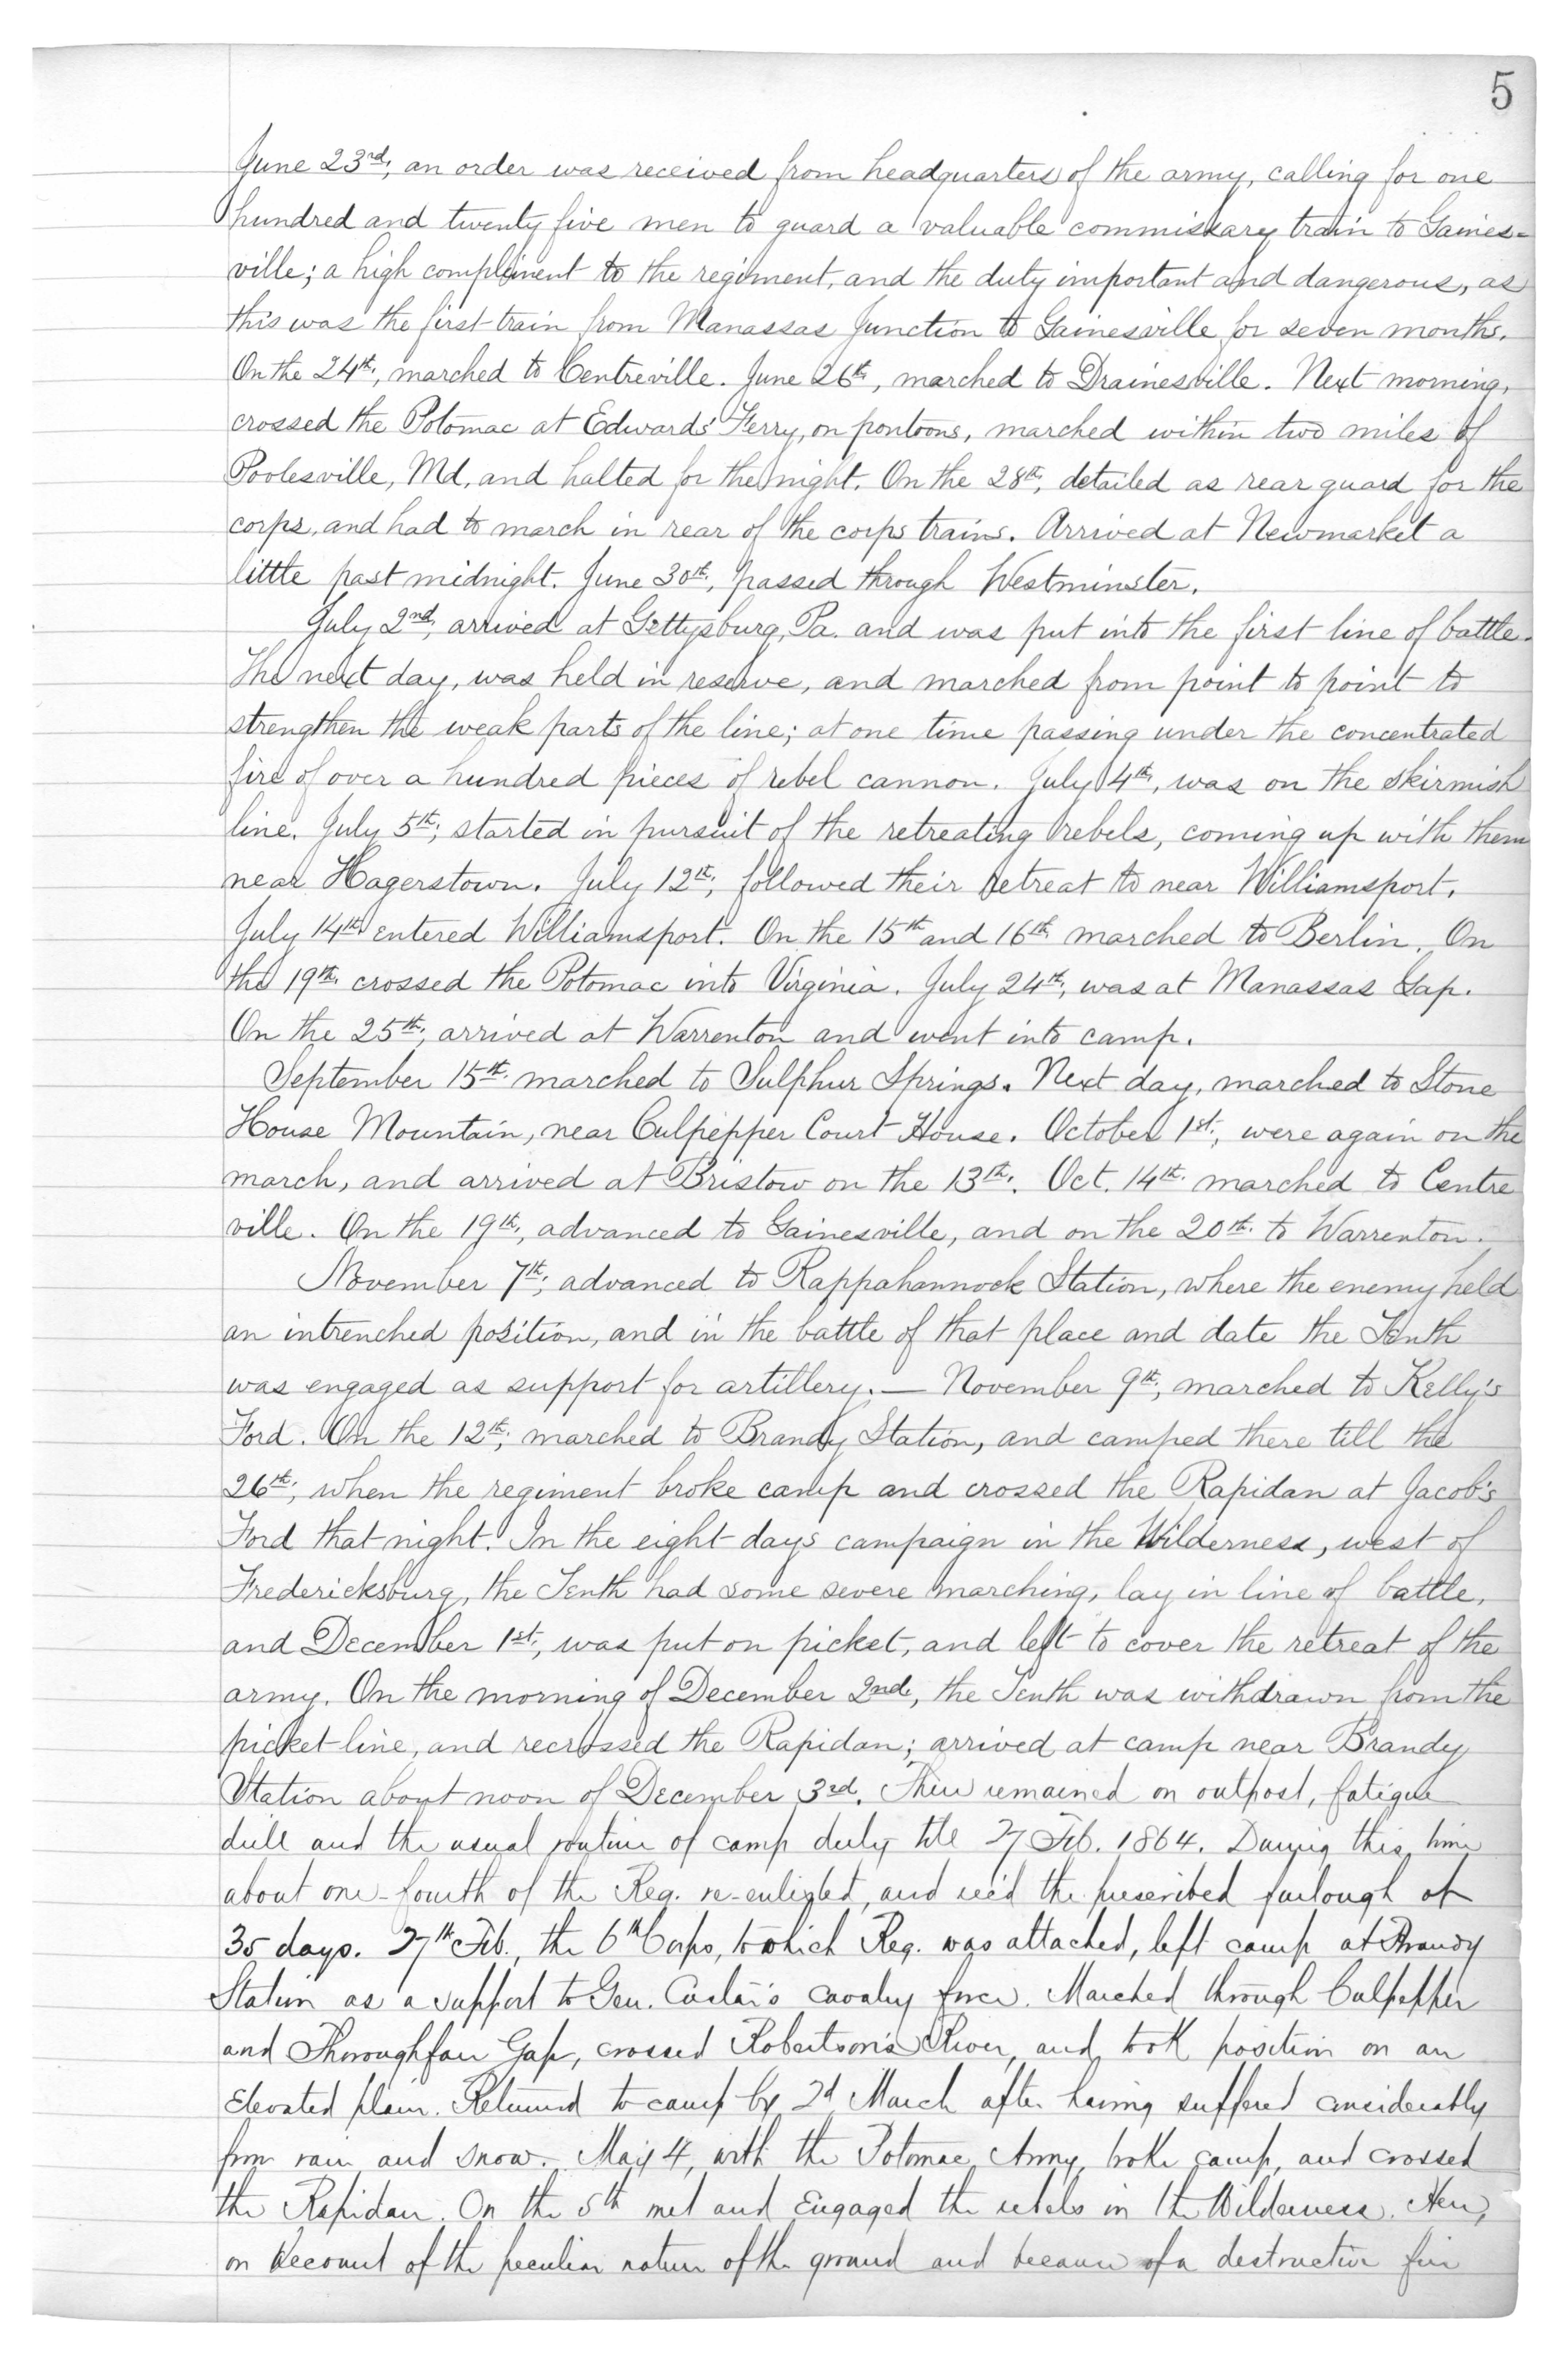 5
June 23rd, an order was received from headquarters of the army, calling for one
hundred and twenty five men to guard a valuable commissary train to Gaines-
ville; a high compliment to the regiment, and the duty important and dangerous, as
this was the first train from Manassas Junction to Gainesville for seven months.
On the 24th, marched to Centreville. June 26th, marched to Drainesville. Next morning,
crossed the Potomac at Edwards' Ferry, on pontoons, marched within two miles of
Poolesville, Md, and halted for the night. On the 28th, detailed as rear guard for the
corps, and had to march in rear of the corps trains. Arrived at Newmarket a
little past midnight. June 30th, passed through Westminster.
July 2nd, arrived at Gettysburg, Pa. and was put into the first line of battle.
The next day, was held in reserve, and marched from point to point to
strengthen the weak parts of the line; at one time passing under the concentrated
fire of over a hundred pieces of rebel cannon. July 4th, was on the skirmish
line. July 5th, started in pursuit of the retreating rebels, coming up with them
near Hagerstown. July 12th, followed their retreat to near Williamsport.
July 14th entered Williamsport. On the 15th and 16th marched to Berlin. On
the 19th crossed the Potomac into Virginia. July 24th, was at Manassas Gap.
On the 25th, arrived at Warrenton and went into camp.
September 15th marched to Sulphur Springs. Next day, marched to Stone
House Mountain, near Culpepper Court House. October 1st, were again on the
march, and arrived at Bristow on the 13th. Oct. 14th marched to Centre
ville. On the 19th, advanced to Gainesville, and on the 20th to Warrenton.
November 7th, advanced to Rappahannock Station, where the enemy held
an intrenched position, and in the battle of that place and date the Tenth
was engaged as support for artillery. — November 9th, marched to Kelly's
Ford. On the 12th, marched to Brandy Station, and camped there till the
26th, when the regiment broke camp and crossed the Rapidan at Jacob's
Ford that night. In the eight days campaign in the Wilderness, west of
Fredericksburg, the Tenth had some severe marching, lay in line of battle,
and December 1st, was put on picket, and left to cover the retreat of the
army. On the morning of December 2nd, the Tenth was withdrawn from the
picket-line, and recrossed the Rapidan; arrived at camp near Brandy
Station about noon of December 3rd. Here remained on outpost, fatigue
drill and the usual routine of camp duty till 27 Feb. 1864. During this time
about one-fourth of the Reg. re-enlisted, and rec'd the prescribed furlough of
35 days. 27th Feb., the 6th Corps, to which Reg. was attached, left camp at Brandy
Station as a support to Gen. Custar's cavalry force. Marched through Culpepper
and Thoroughfare Gap, crossed Robertson's River, and took position on an
elevated plain. Returned to camp by 2d March after having suffered considerably
from rain and snow. May 4, with the Potomac Army, broke camp, and crossed
the Rapidan. On the 5th met and engaged the rebels in the Wilderness. Here,
on account of the peculiar nature of the ground and because of a destructive fire